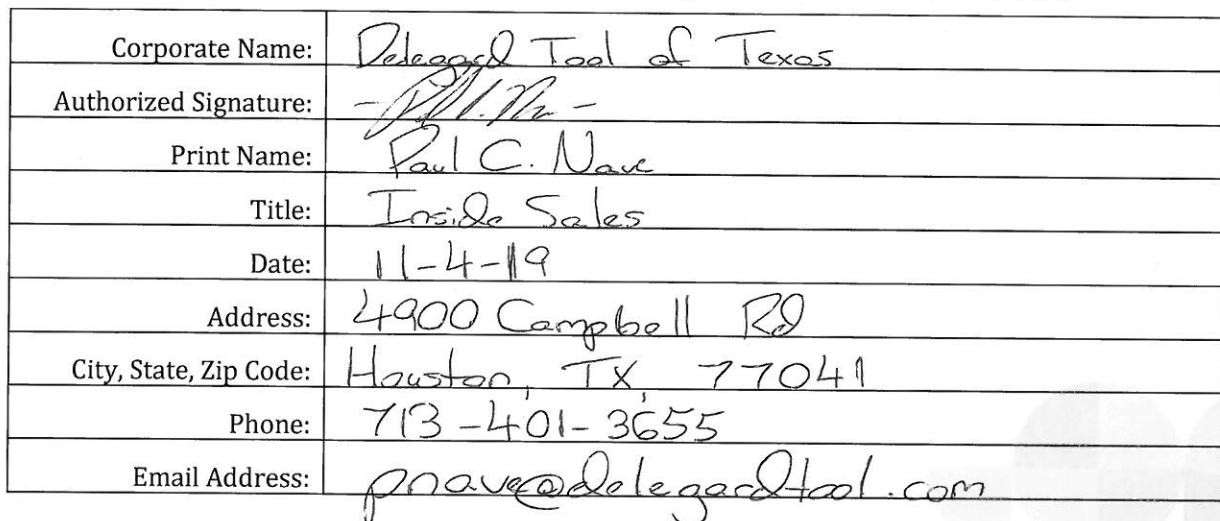 Corporate Name: Delegard Tool of Texas
Authorized Signature:
Print Name: Paul C. Nave
Title: Inside Sales
Date: 11-4-19
Address: 4900 Campbell Rd
City, State, Zip Code: Houston, TX, 77041
Phone: 713-401-3655
Email Address: pnave@delegardtool.com